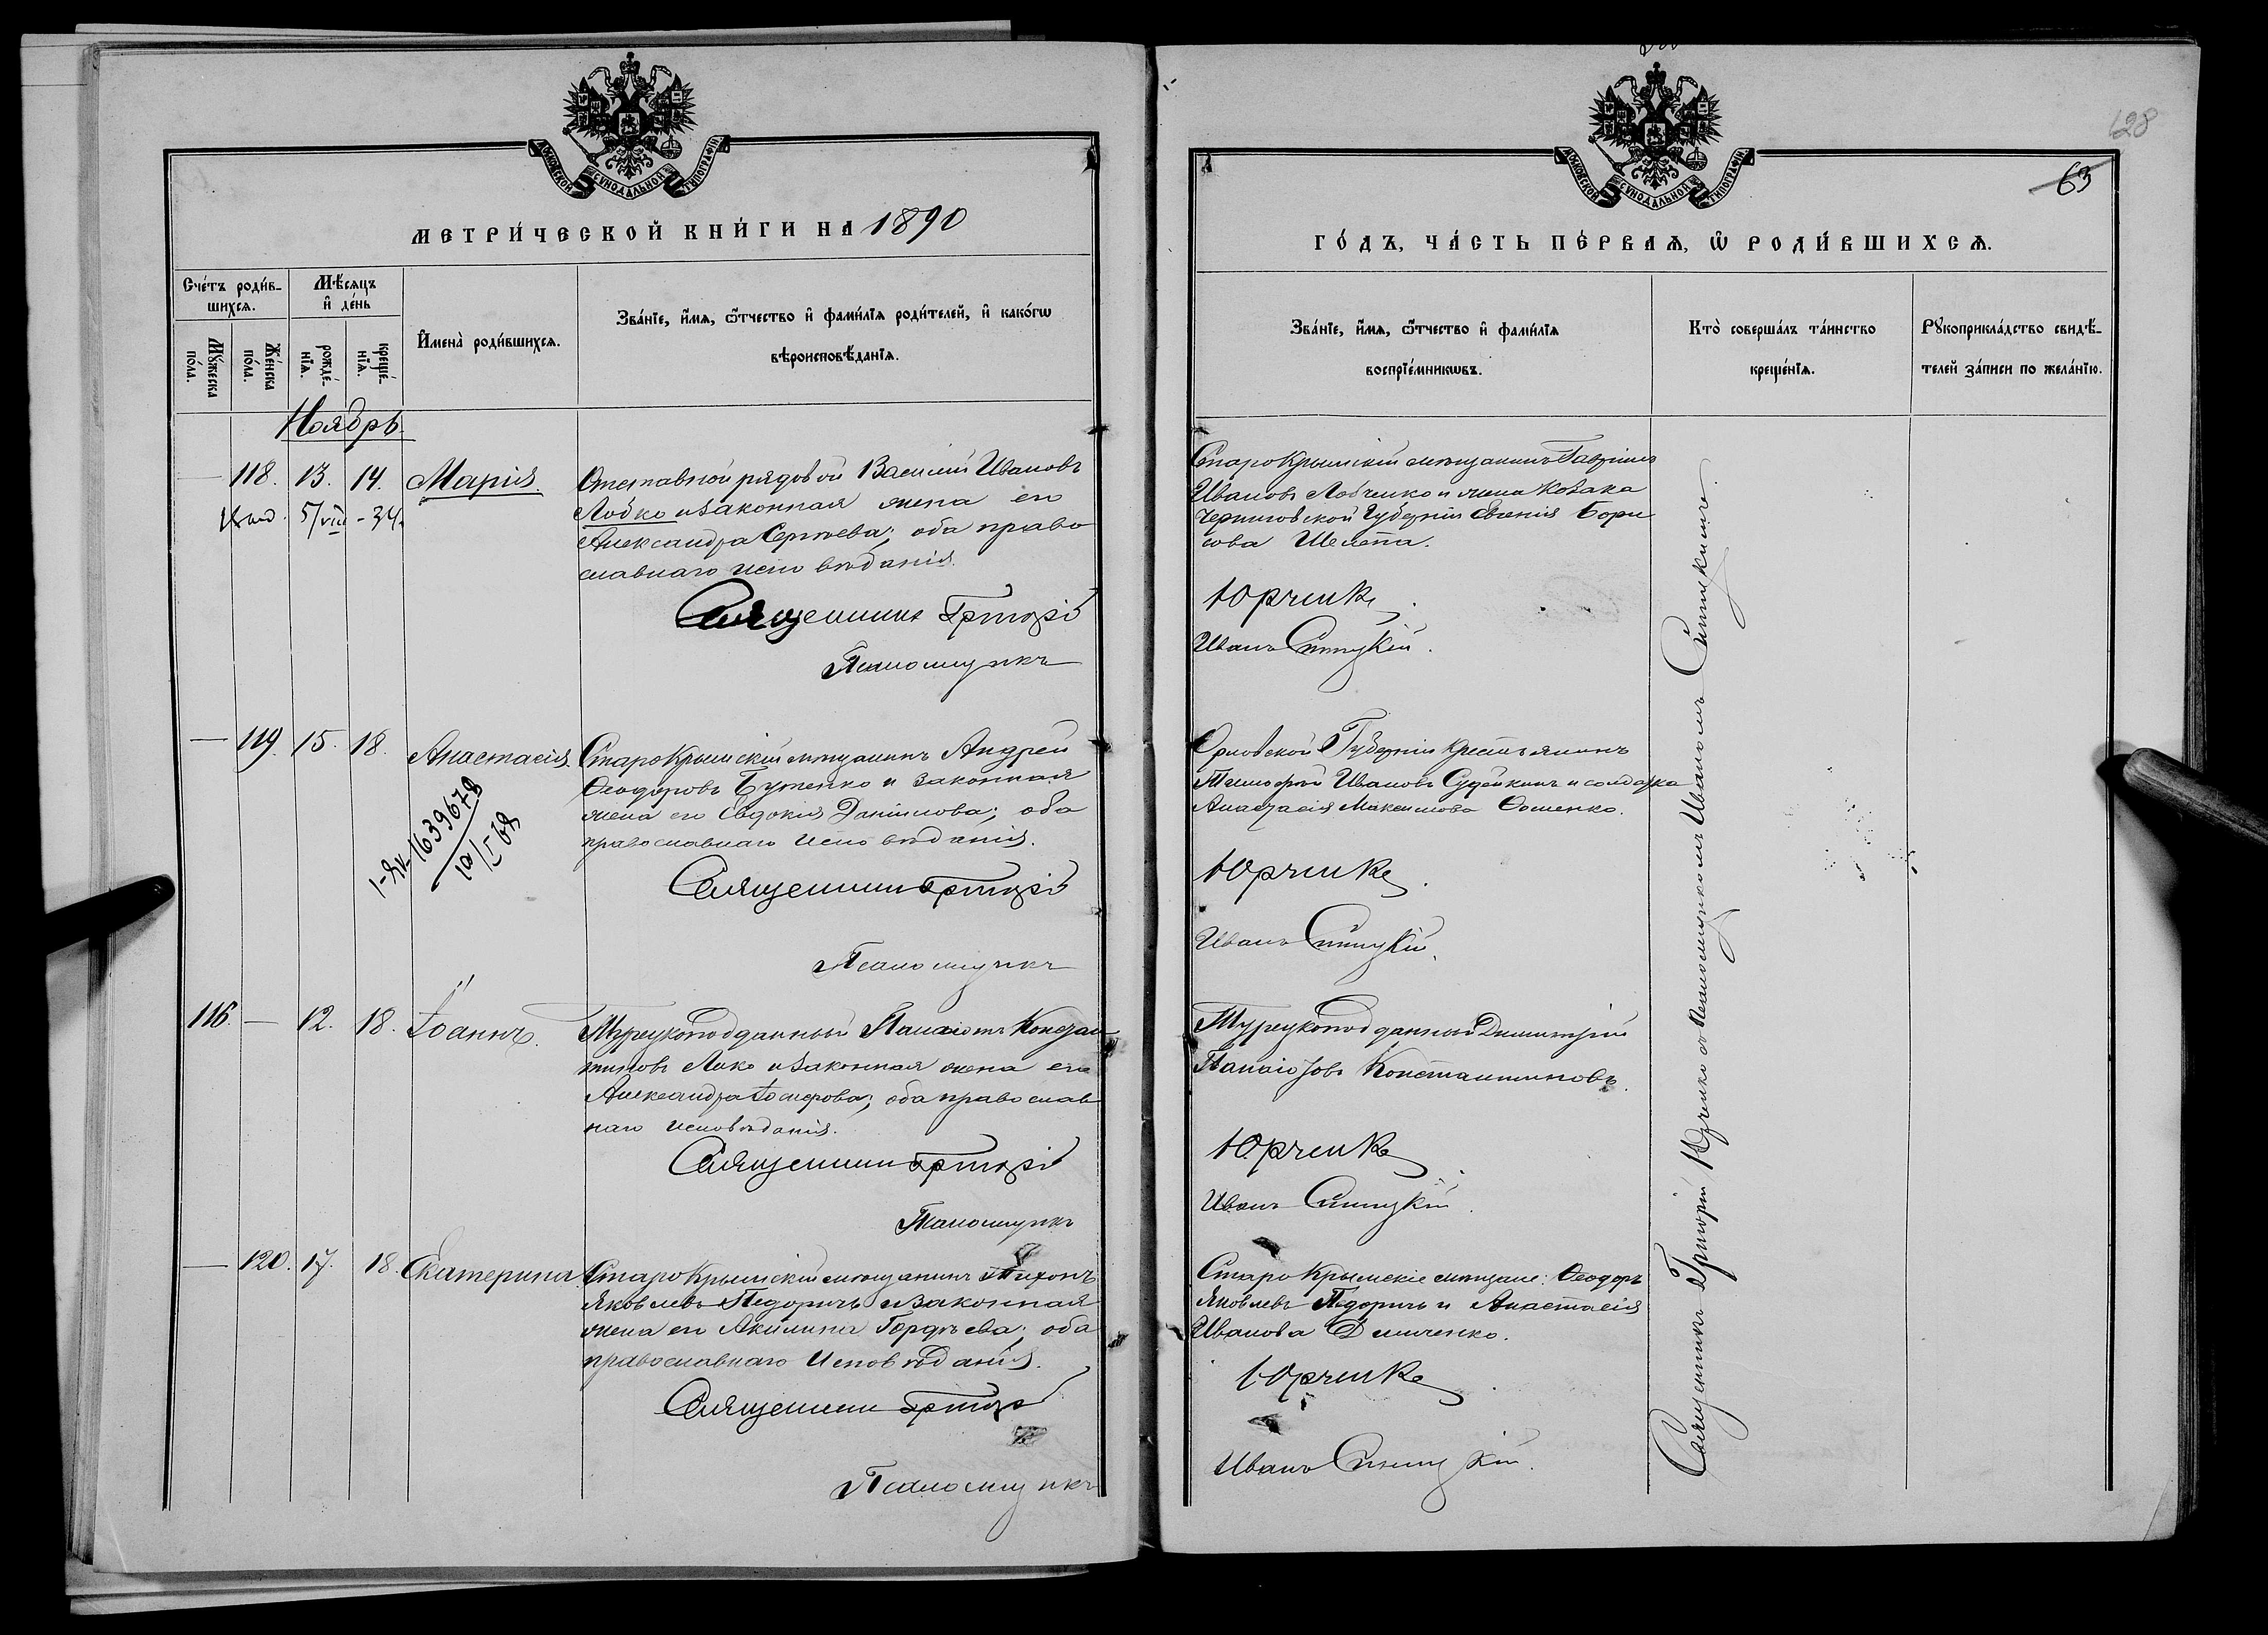 МОСКОВСКОЙ СѴНОДАЛЬНОЙ ТИПОГРАФІИ
МЕТРИ́ЧЕСКОЙ КНИ́ГИ НА 1890
Счéтъ роди́в-
шихсѧ.
Мꙋ́жеска
по́ла.
Же́нска
по́ла.
Мѣ́сѧцъ
и҆ де́нь
рожде́-
нїѧ.
креще́-
нїѧ.
И҆мена̀ роди́вшихсѧ.
Зва́нїе, и҆́мѧ, ѻ҆́тчество и҆ фами́лїѧ роди́телей, и҆ како́гѡ
вѣроисповѣ́данїѧ.
Ноябрь.
— 118. 13. 14. Марія.
5/VIII - 34.
Отставной рядовой Василій Ивановъ
Лобко и законная жена его
Александра Сергѣева; оба право
славнаго исповѣданія.
Священникъ Григорій
Псаломщикъ
— 119. 15. 18. Анастасія.
Старокрымскій мѣщанинъ Андрей
Ѳеодоровъ Бутенко и законная
жена его Евдокія Даніилова; оба
православнаго исповѣданія.
1-ЯИ-1639678
Священникъ Григорій
Псаломщикъ
116. — 12. 18. Іоаннъ.
Турецкоподданный Панаіотъ Констан
тиновъ Лико и законная жена его
Александра; оба православ
наго исповѣданія.
Священникъ Григорій
Псаломщикъ
— 120. 17. 18. Екатерина
Старокрымскій мѣщанинъ Тихонъ
Яковлевъ Педоричъ и законная
жена его Акилина Гордѣева; оба
православнаго исповѣданія.
Священникъ Григорій
Псаломщикъ
128
63
МОСКОВСКОЙ СѴНОДАЛЬНОЙ ТИПОГРАФІИ
ГО́ДЪ, ЧА́СТЬ ПЕ́РВАѦ, Ѡ҆ РОДИ́ВШИХСѦ.
Зва́нїе, и҆́мѧ, ѻ҆́тчество и҆ фами́лїѧ
воспрїе́мникѡвъ.
Кто̀ соверша́лъ та́инство
креще́нїѧ.
Рꙋкоприкла́дство свидѣ́-
телей за́писи по жела́нїю.
Старокрымскій мѣщанинъ Гавріилъ
Ивановъ Лобченко и жена козака
Черниговской Губерніи Евгенія Бори
сова Шелета.
Юрченко
Иванъ Синицкій.
Орловской Губерніи крестьянинъ
Тимофей Ивановъ Судейкинъ и солдатка
Анастасія Максимова Ѳоменко.
Юрченко
Иванъ Синицкій.
Турецкоподданный Димитрій
Панаіотовъ Константиновъ.
Юрченко
Иванъ Синицкій.
Старокрымскіе мѣщане: Ѳеодоръ
Яковлевъ Педоричъ и Анастасія
Иванова Демченко.
Юрченко
Иванъ Синицкій.
Священникъ Григорій Юрченко съ Псаломщикомъ Иваномъ Синицкимъ.